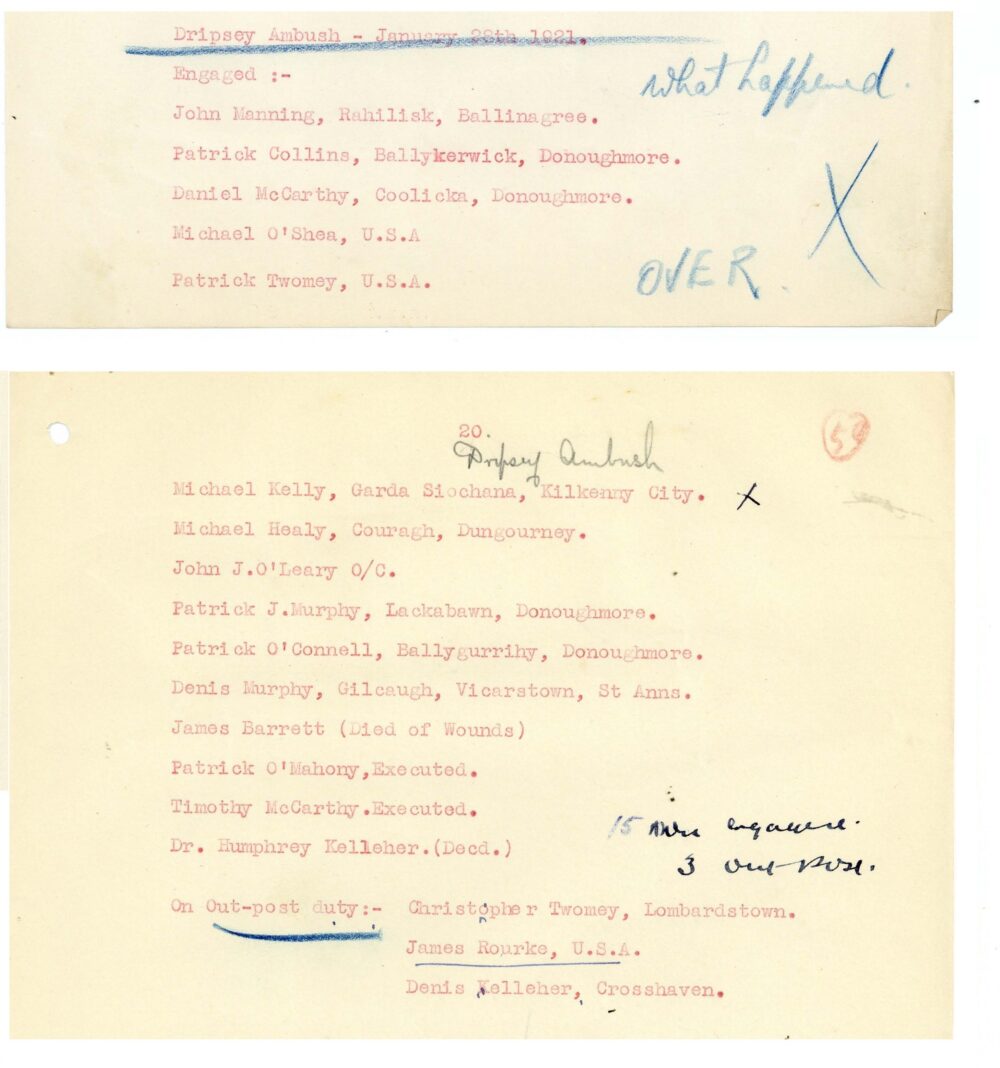 Dripsey Ambush - January 28th 1921.
Engaged :-
what happened.
John Manning, Rahilisk, Ballinagree.
Patrick Collins, Ballykerwick, Donoughmore.
Daniel McCarthy, Coolicka, Donoughmore.
X
Michael O'Shea, U.S.A
Patrick Twomey, U.S.A.
OVER.
20.
59
Dripsey Ambush
Michael Kelly, Garda Siochana, Kilkenny City. X
Michael Healy, Couragh, Dungourney.
John J.O'Leary O/C.
Patrick J.Murphy, Lackabawn, Donoughmore.
Patrick O'Connell, Ballygurrihy, Donoughmore.
Denis Murphy, Gilcaugh, Vicarstown, St Anns.
James Barrett (Died of Wounds)
Patrick O'Mahony,Executed.
Timothy McCarthy.Executed.
15 men engaged.
Dr. Humphrey Kelleher.(Decd.)
3 out-post.
On Out-post duty:- Christopher Twomey, Lombardstown.
James Rourke, U.S.A.
Denis Kelleher, Crosshaven.